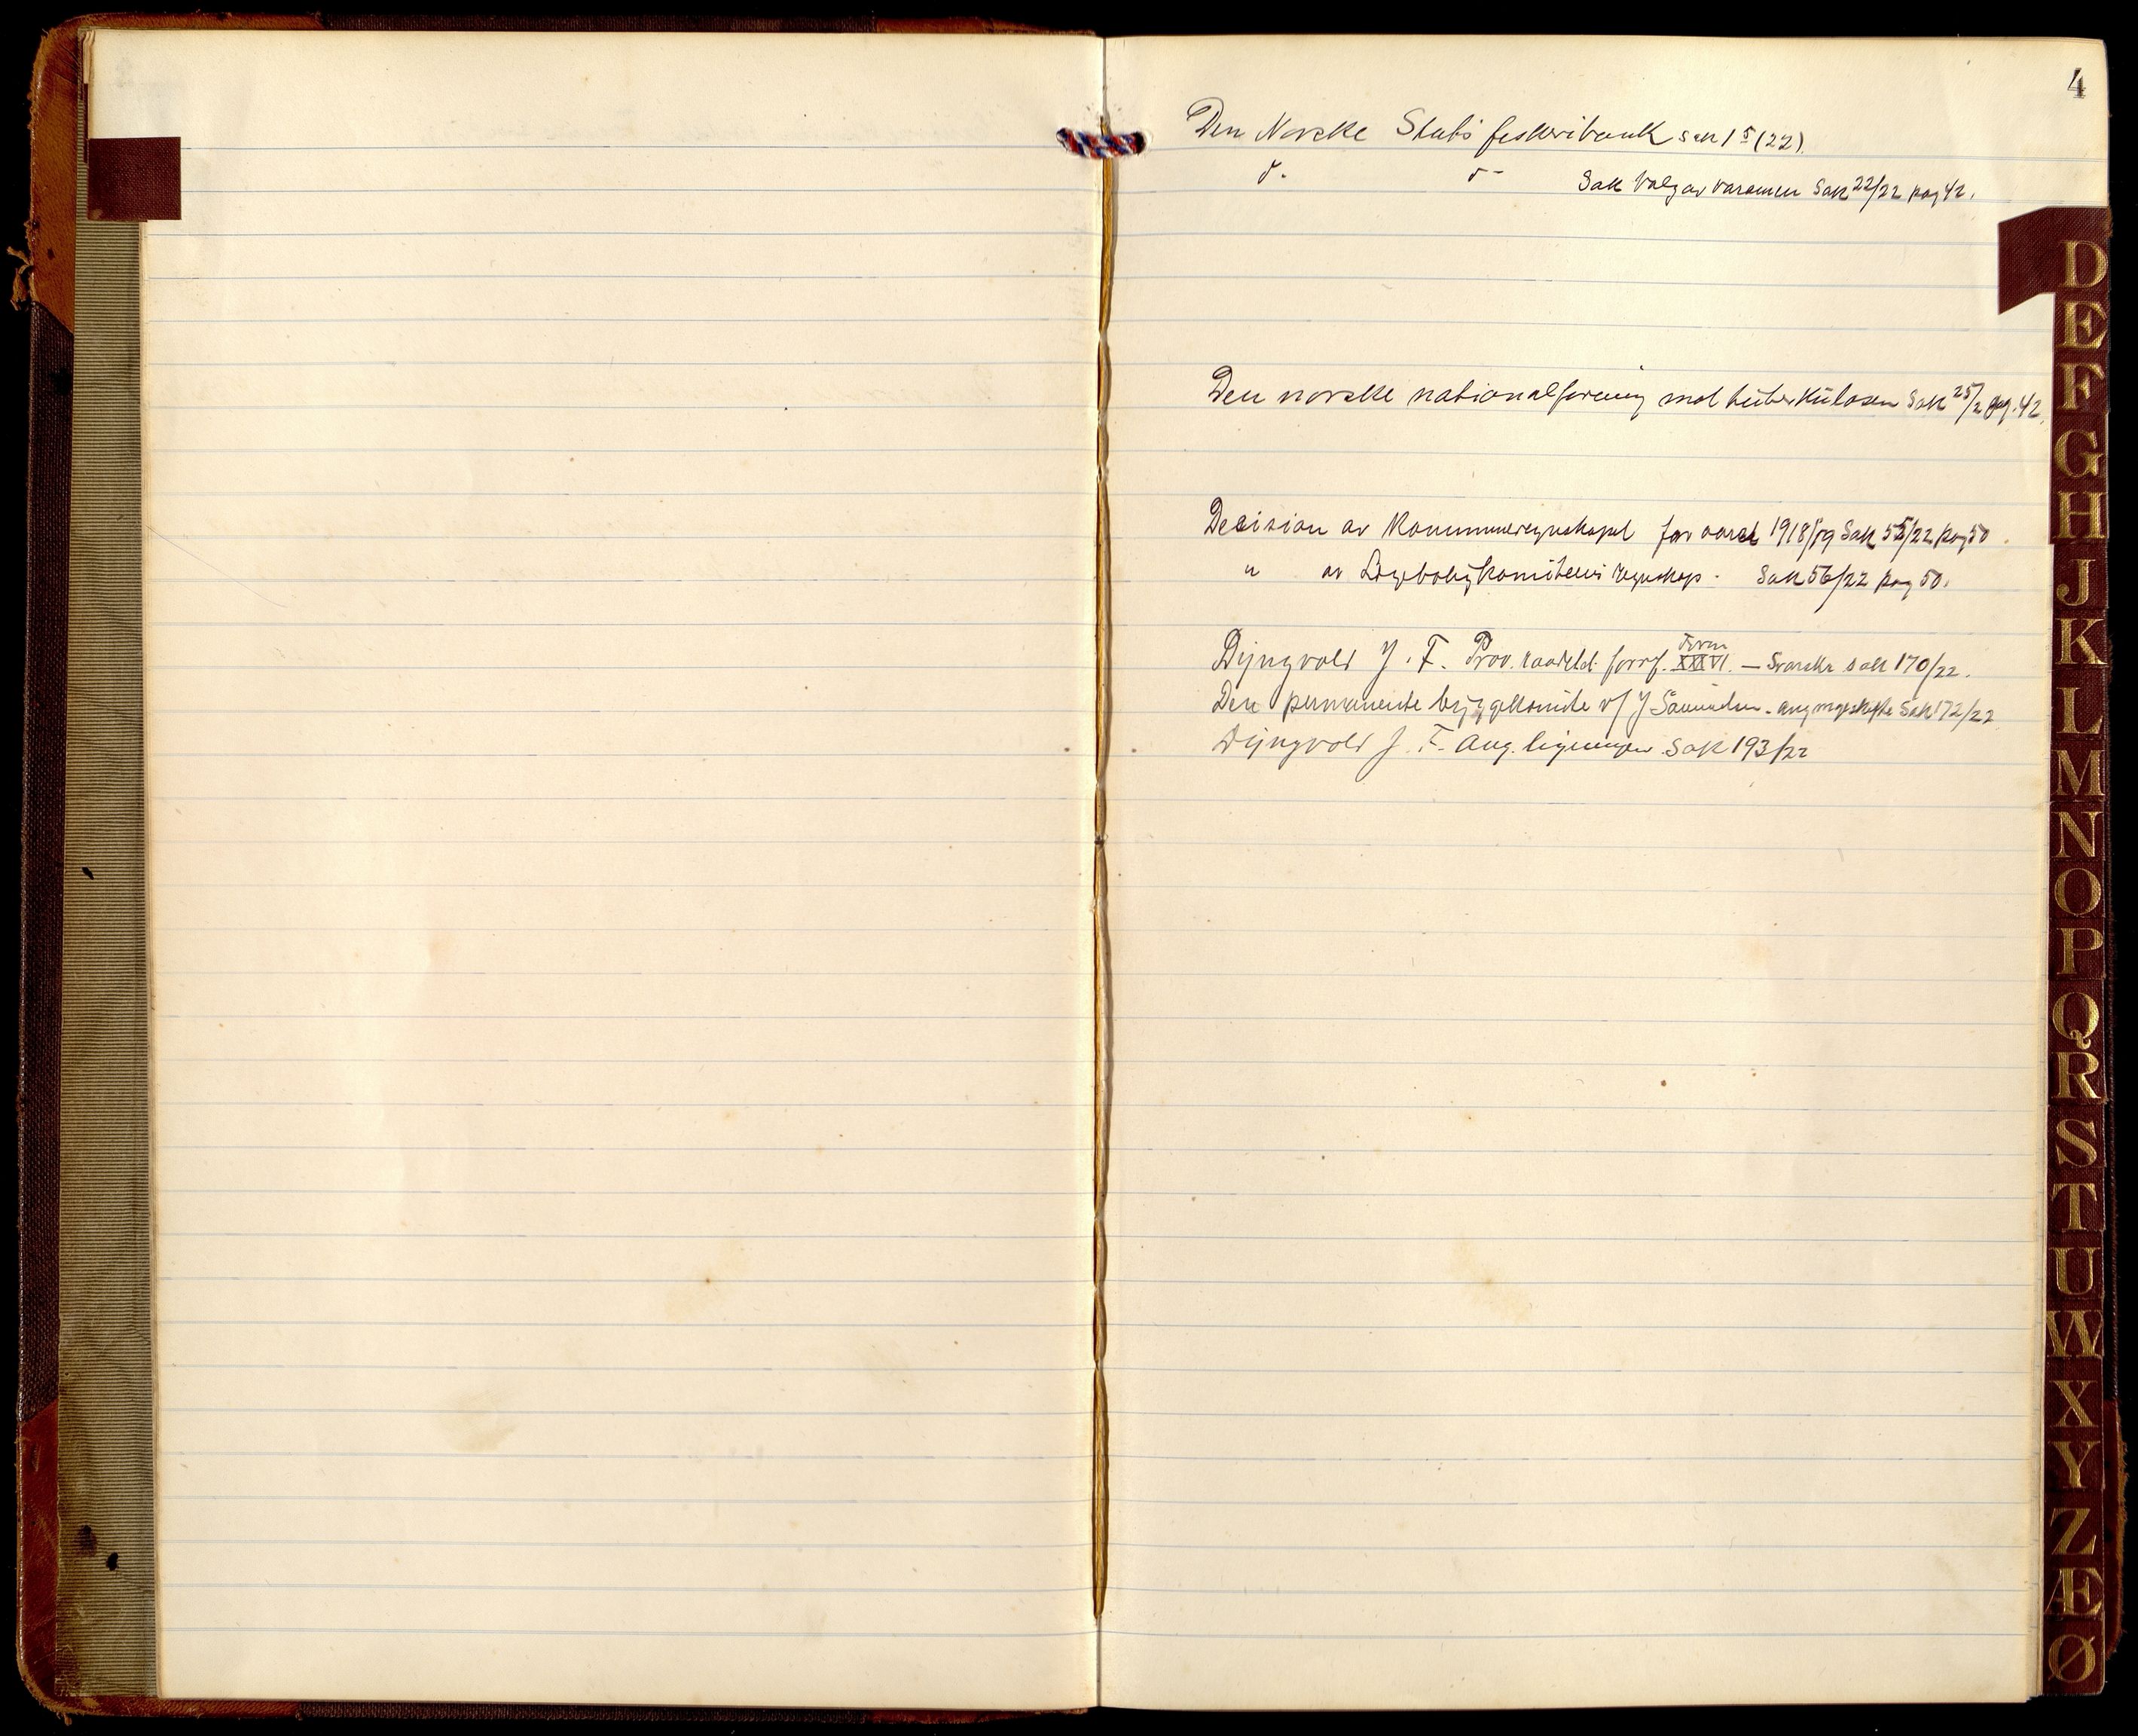 4
Den Norske Stats fiskeribank sak 15 (22).
d. d- Sak Valg av varamen Sak 22/22 pag 42.
Den norske nationalforening mot tuberkulosen Sak 25/2 pag. 42.
Decision av Kommuneregnskapet for aaret 1918/19 Sak 55/22 pag 50.
" av Lægeboligkomiteens regnskap. Sak 56/22 pag 50.
Dyngvold J. F. Prov. raadeld. forrf. XXVI. — Svarske sak 170/22.
Den permanente byggekomite v/ J Samuelsen - ang Sak 172/22
Dyngvold J. F. Ang. ligningen Sak 193/22
D
E
F
G
H
J
K
L
M
N
O
P
Q
R
S
T
U
W
X
Y
Z
Æ
Ø